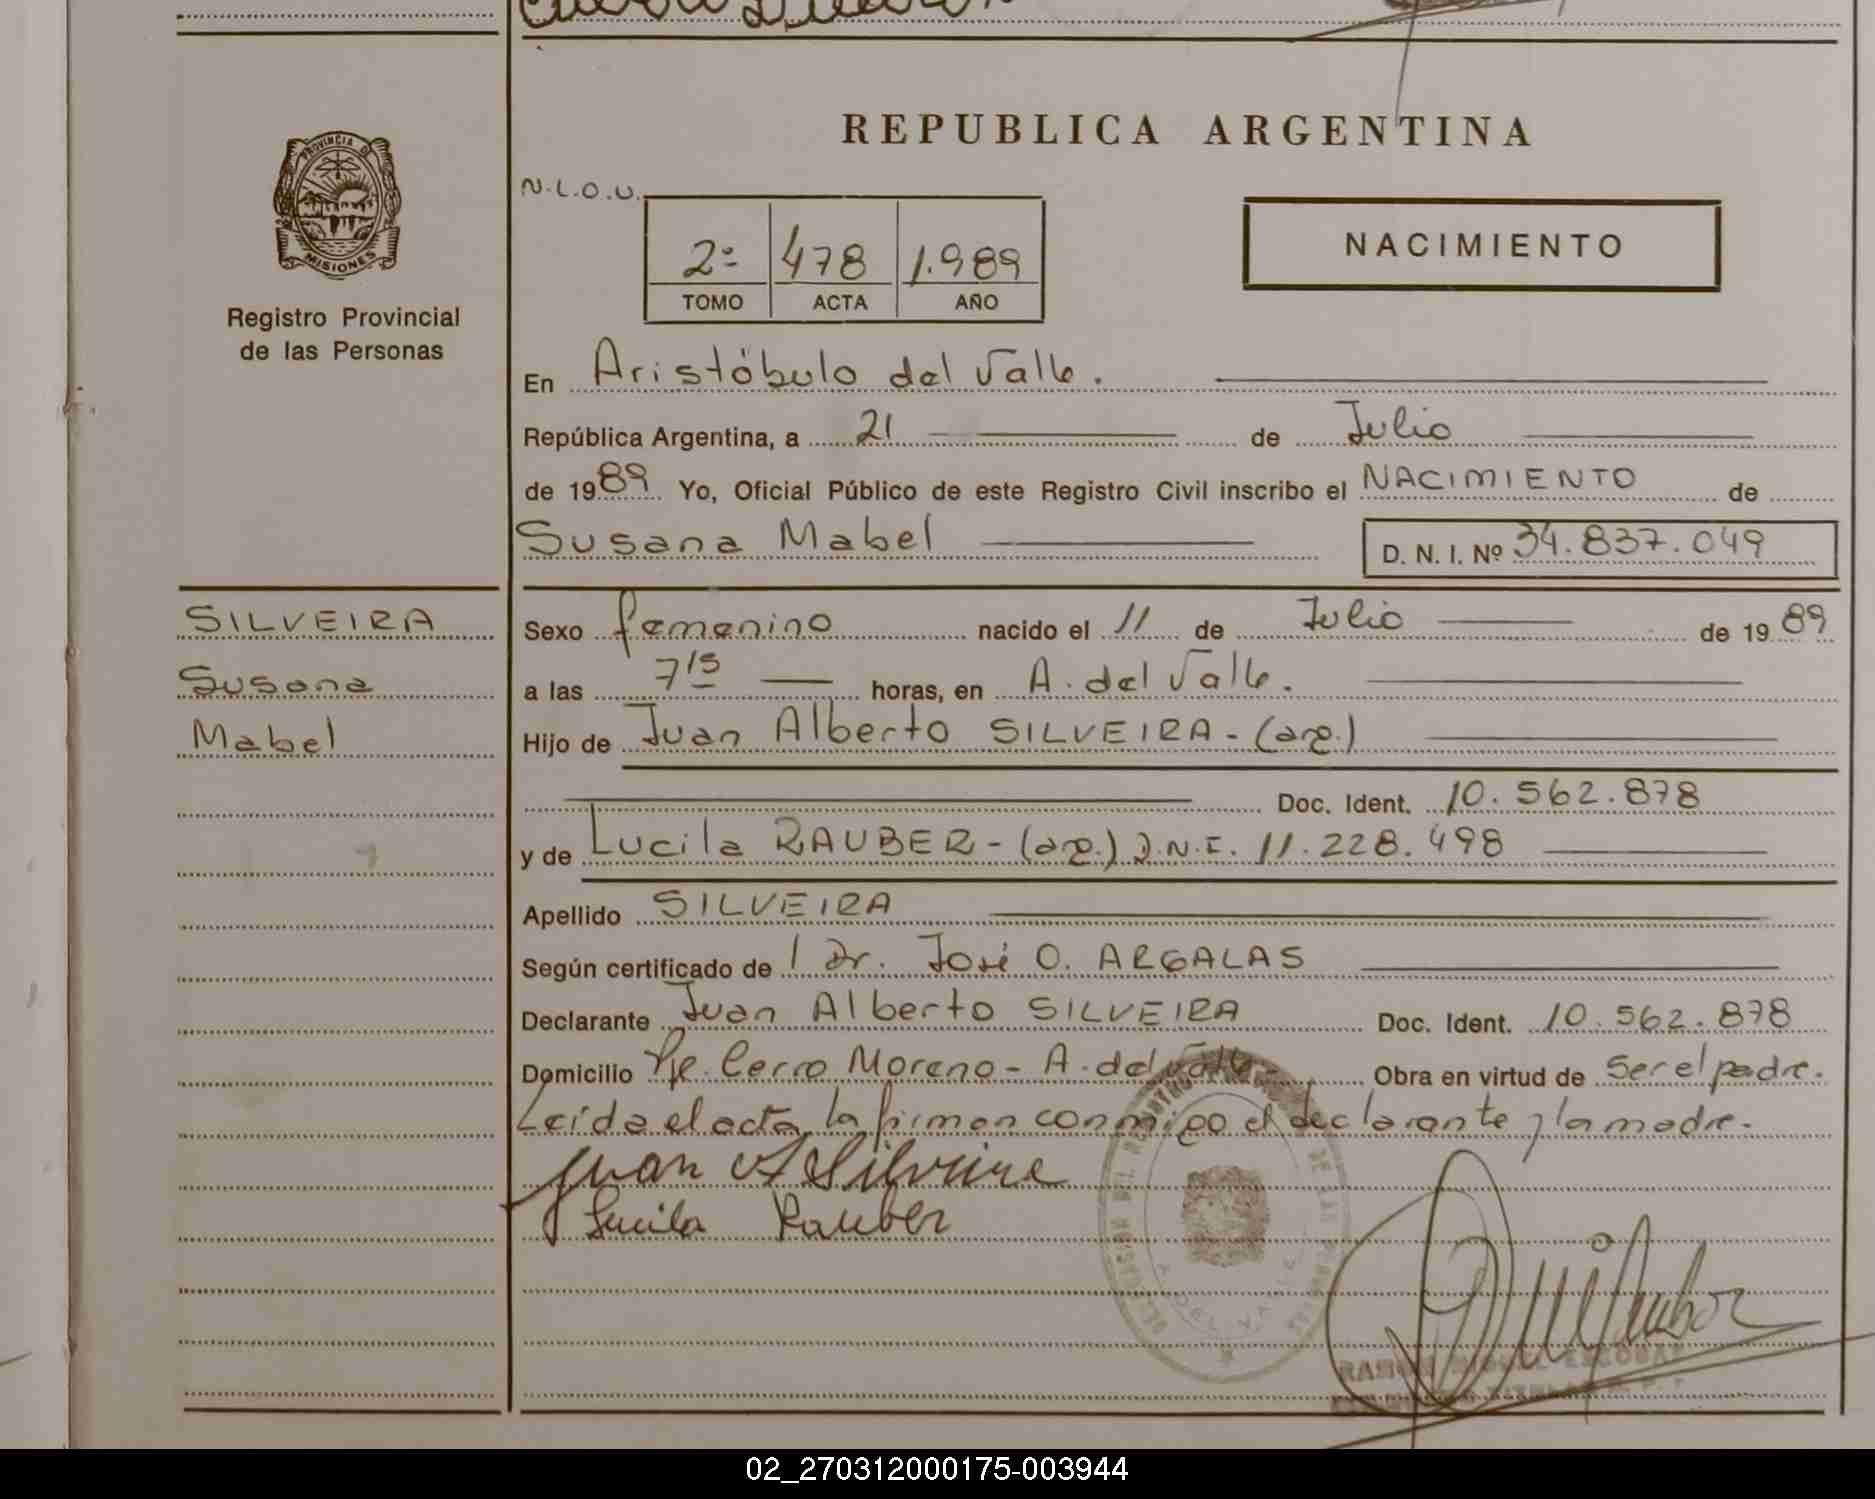 PROVINCIA D
MISIONES
Registro Provincial
de las Personas
SILVEIRA
Susana
Mabel
REPUBLICA ARGENTINA
N.L.O.U.
2º 478 1.989
TOMO ACTA AÑO
NACIMIENTO
En Aristóbulo del Valle.
República Argentina, a 21 de Julio
de 1989 Yo, Oficial Público de este Registro Civil inscribo el NACIMIENTO de
Susana Mabel D. N. I. Nº 34.837.049
Sexo femenino nacido el 11 de Julio de 1989
a las 7 15 horas, en A. del Valle.
Hijo de Juan Alberto SILVEIRA - (arg.)
Doc. Ident. 10.562.878
y de Lucila RAUBER - (arg.) D.N.I. 11.228.498
Apellido SILVEIRA
Según certificado de 1 Dr. José O. ARGALAS
Declarante Juan Alberto SILVEIRA Doc. Ident. 10.562.878
Domicilio Pje. Cerro Moreno - A. del Valle Obra en virtud de ser el padre.
Leída el acta, la firman conmigo el declarante y la madre.
Juan A Silveira
Lucila Rauber
DE LAS
A. DEL VALLE
RAMON MIGUEL ESCOBAR
02_270312000175-003944